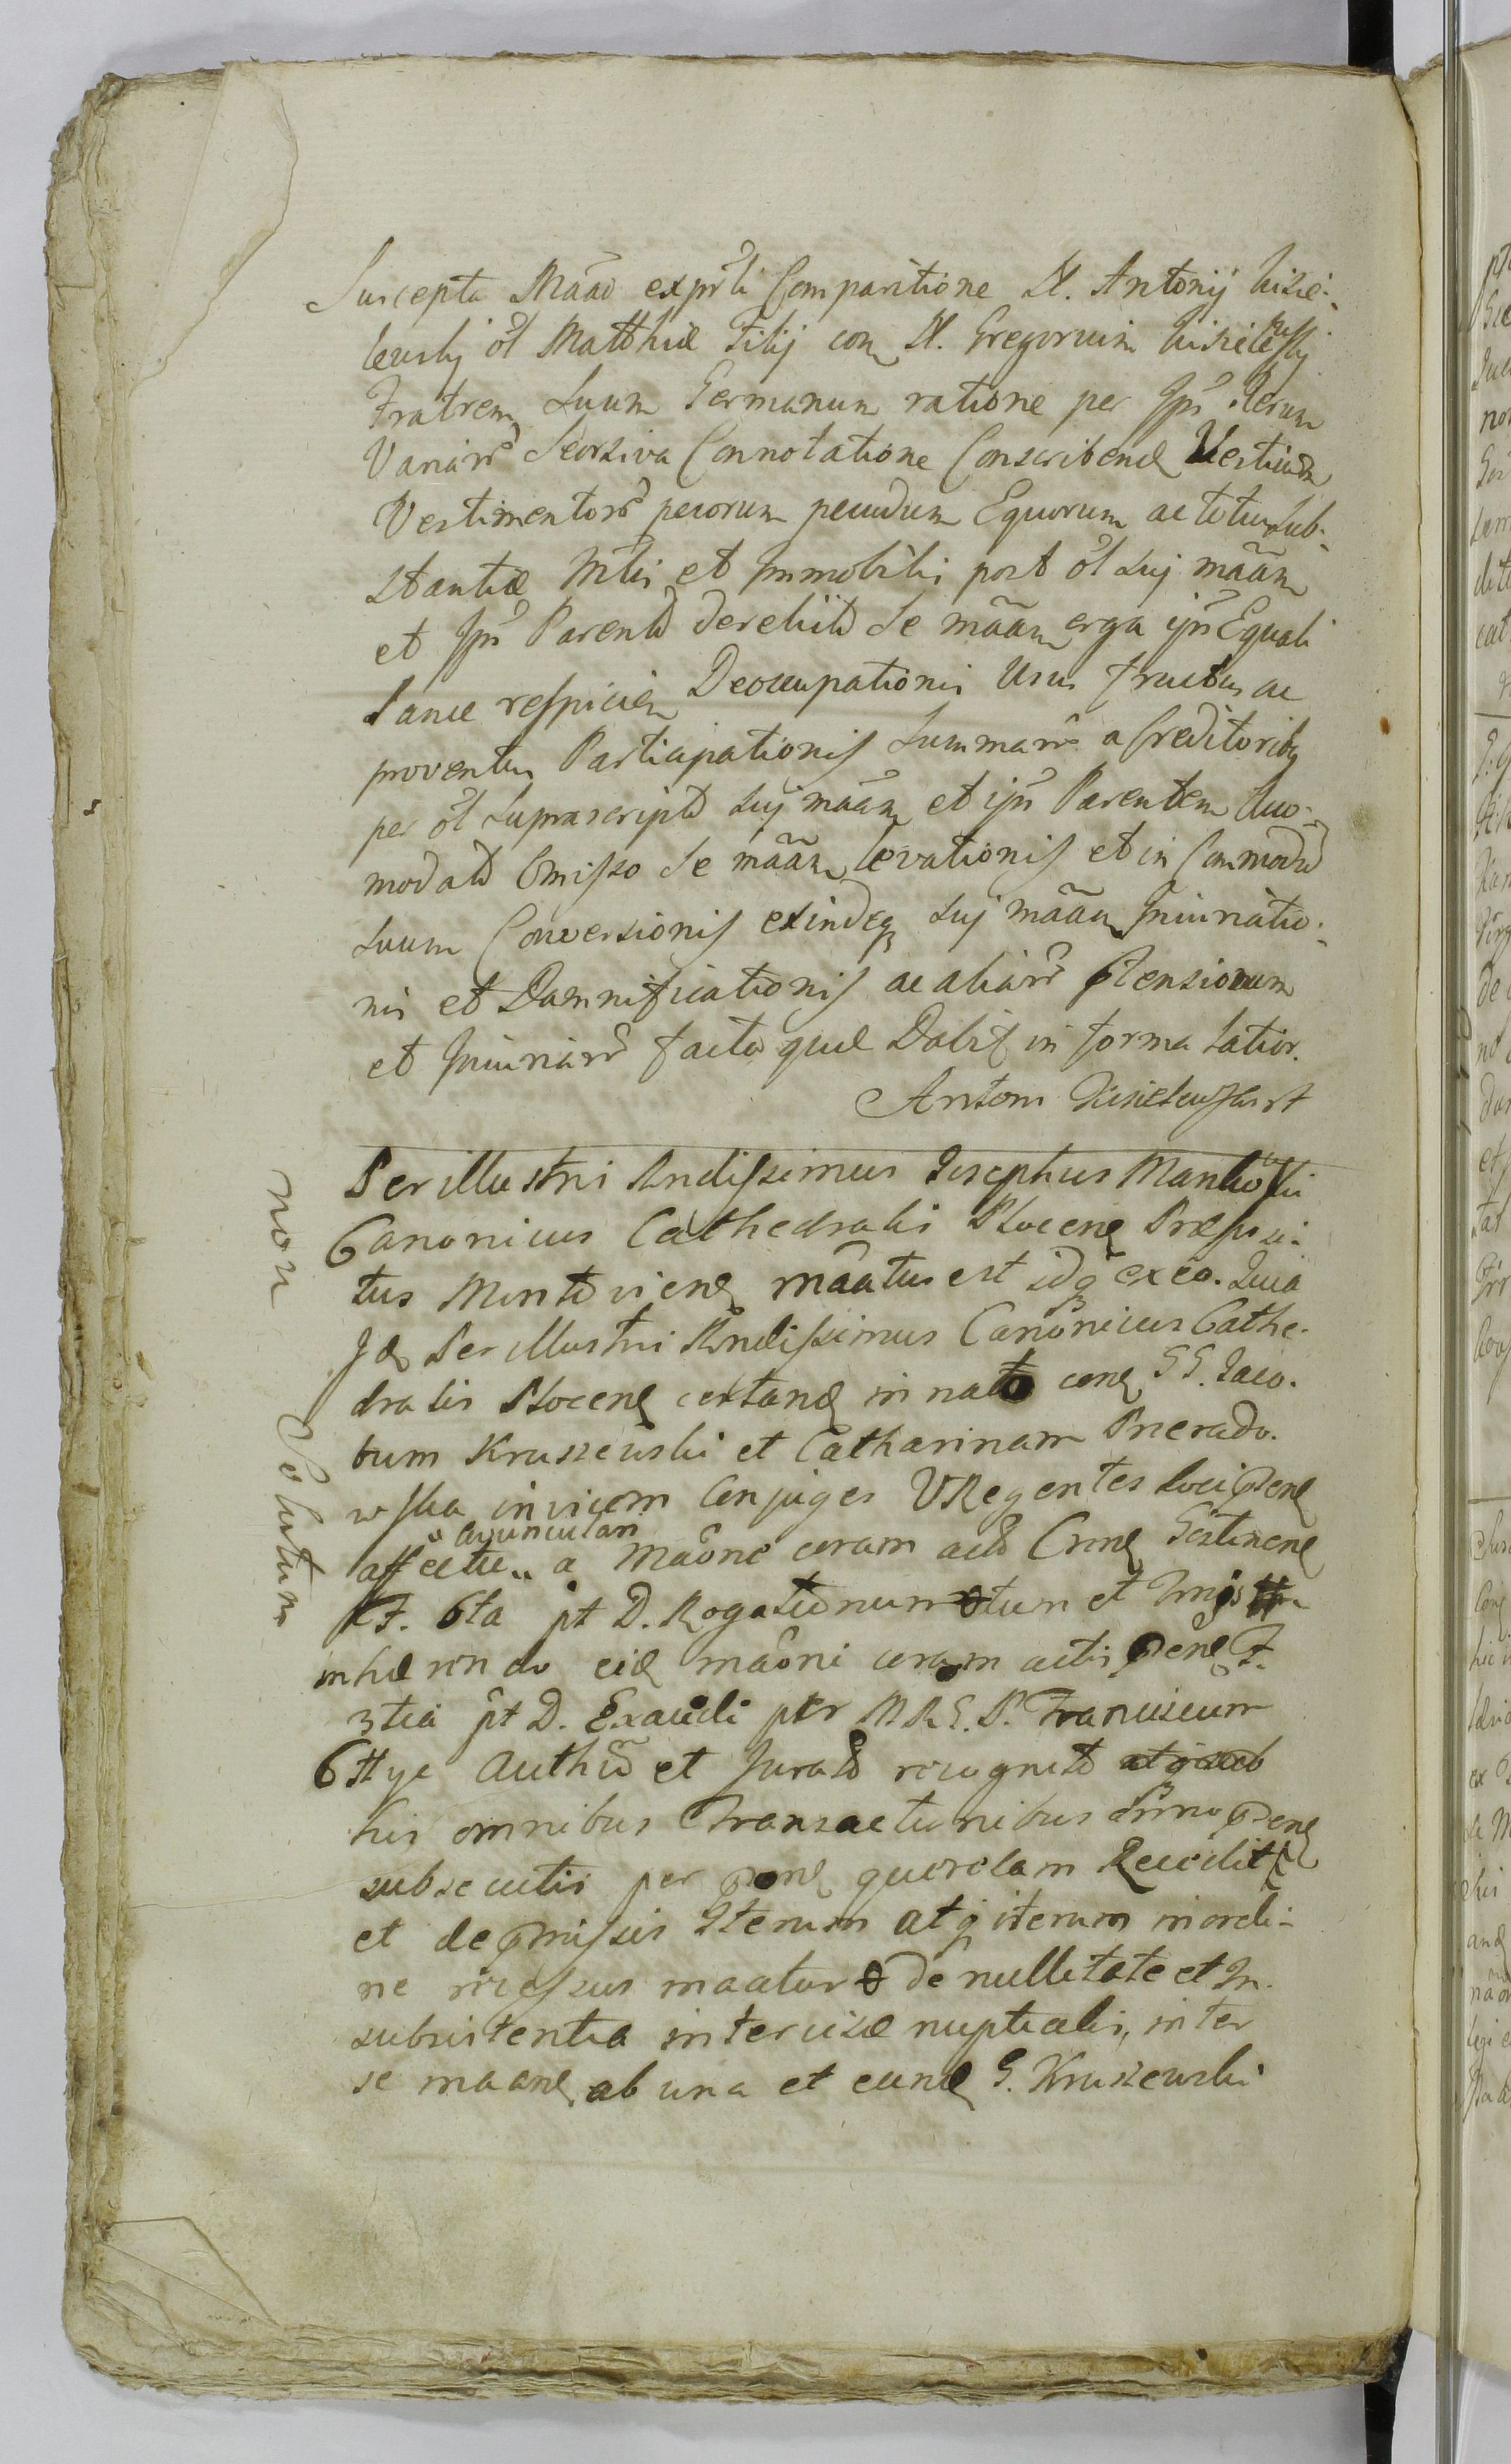 Suscepta Mãao exprti Comparitione N. Antonij kisie-
lewskj ol Matthiæ Filij con N. Gregorium kisielewskj
Fratrem Suum Germanum ratione per Ips Rerum
Variarr Seorsiva Connotatione Conscribend Vestium
Vestimentorr pecorum pecudum Equorum ac totius Sub-
stantiæ Mtis et Immobilis post ol Suj mãam
et Ips Parentd derelictd Se mãam erga ips Equali
Lance respicien Deoccupationis Usus fructus ac
proventus Participationis Summarr a Creditoribg
per ol Suprascriptd Suj mãam et ips Parentem
modatd Omisso Se mãam levationis et in Commodū
Suum Conversionis exindeq Suj mãam Iniuriatio-
nis et Damnificationis ac aliarr ptensionum
et Iniuriarr facta quæ Dabit in forma Latior.
Antoni Kisielewski
Perillustris Rndissimus Josephus Mankoski
Canonicus Cathedralis Plocen Præposi-
tus mãatus est idq ex eo. Quia
Id Perillustris Rndissimus Canonicus Cathe-
dralis Plocen certand in nato con GG. Jaco-
bum Kruszewski et Catharinam Prerado-
wska invicem Conjuges VRegentes Loci pten
affectu avunculari a Mãone coram actis Crens Gostinen
F. 6ta pt D. Rogationum
inhærendo eid mãoni coram actis pten F.
3tia pt D. Exaudi per M R G. P. Franciscum
Authū et Juratd recognitd
his omnibus Transactionibus pten
subsecutis per querelam Recedit
et de pmissis Iterum atq iterum in ordi-
ne recessus maatur de nullitate et In-
subsistentia intercisæ nuptialis, inter
se maand ab una et eund G. Kruszewski
non Solutum